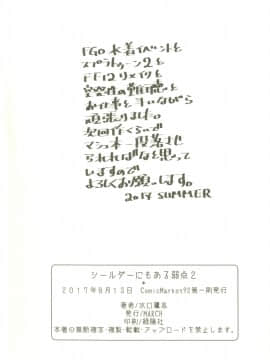 FGO水着イベントを
スプラトゥーン2を
FF12リメイクを
お仕事をしながら
頑張りました。
次回作くらいで
マシュも一段落させ
られればなと思って
いますので
よろしくお願いします。
2017 SUMMER
シールダーにもある弱点2
2017年8月13日 ComicMarket92第一刷発行
著者/水口鷹志
発行/MARCH
印刷/緑陽社
本書の無断複写・複製・転載・アップロードを禁止します。